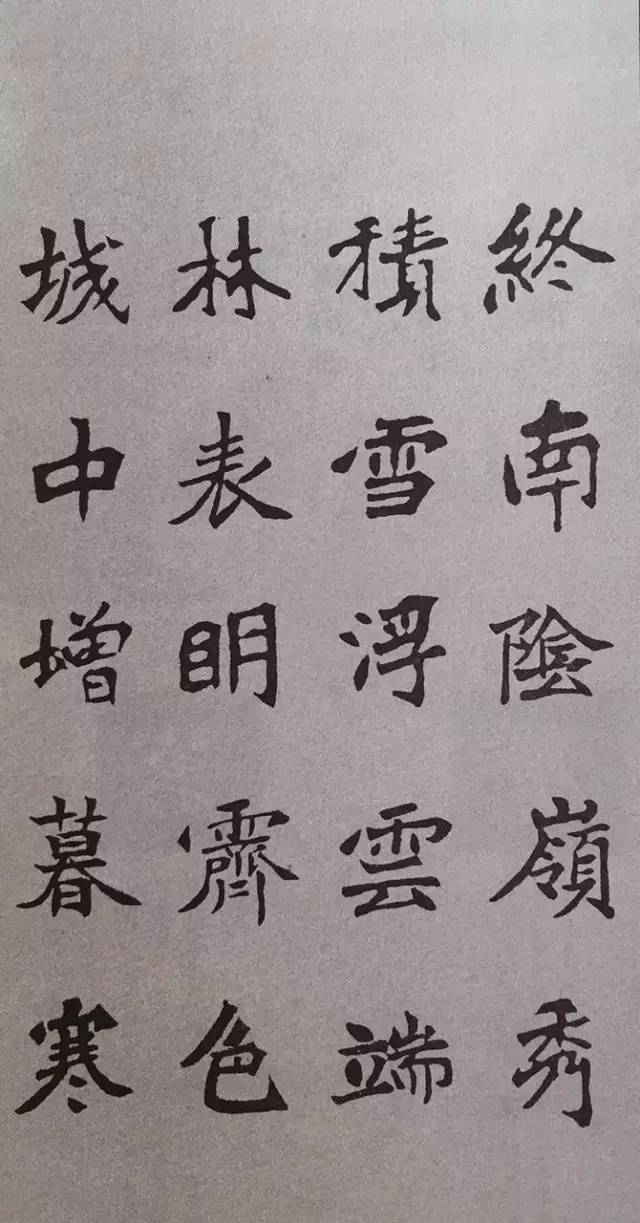 終南陰嶺秀
積雪浮雲端
林表眀霽色
城中增暮寒